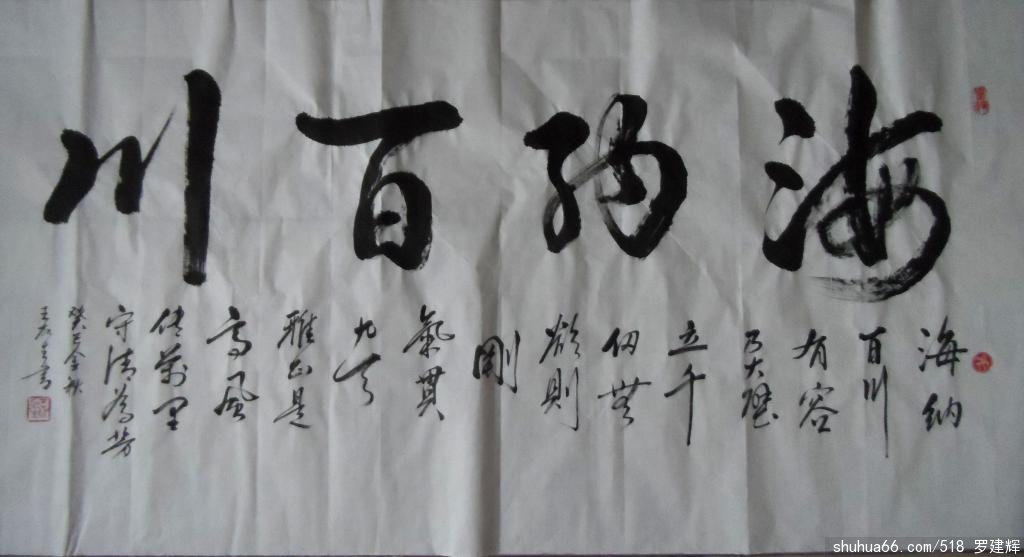 海纳百川
海纳
百川
有容
乃大壁
立千
仞無
欲則
剛
氣貫
九天
雅正是
高風
传萬里
守清為芳
癸巳金秋
王書
shuhua66.com/518 罗建辉